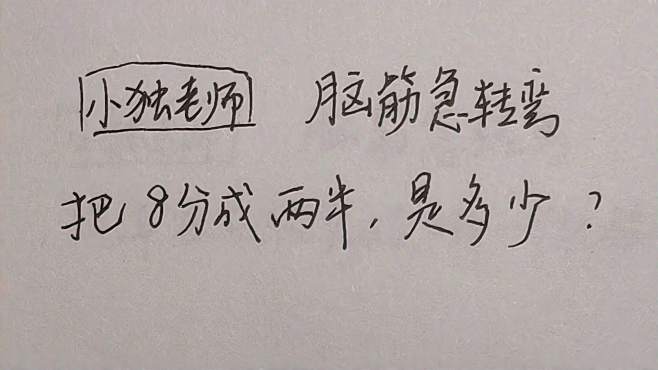 小独老师 脑筋急转弯
把8分成两半,是多少?